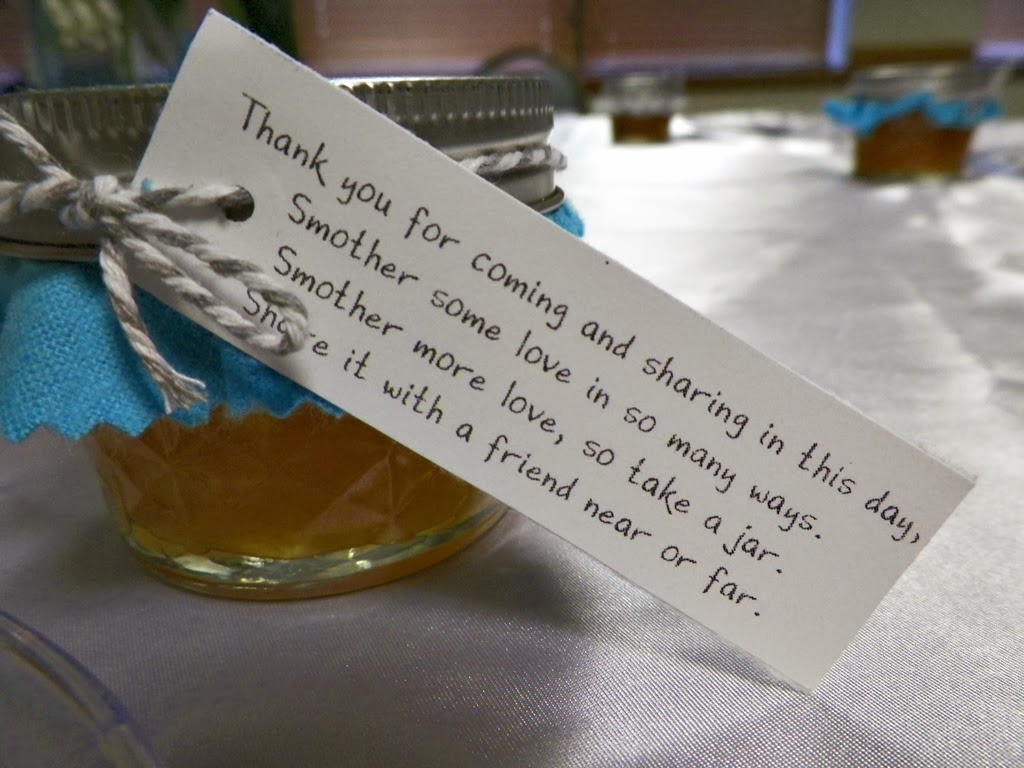 Thank you for coming and sharing in this day,
Smother some love in so many ways.
Smother more love, so take a jar.
Share it with a friend near or far.